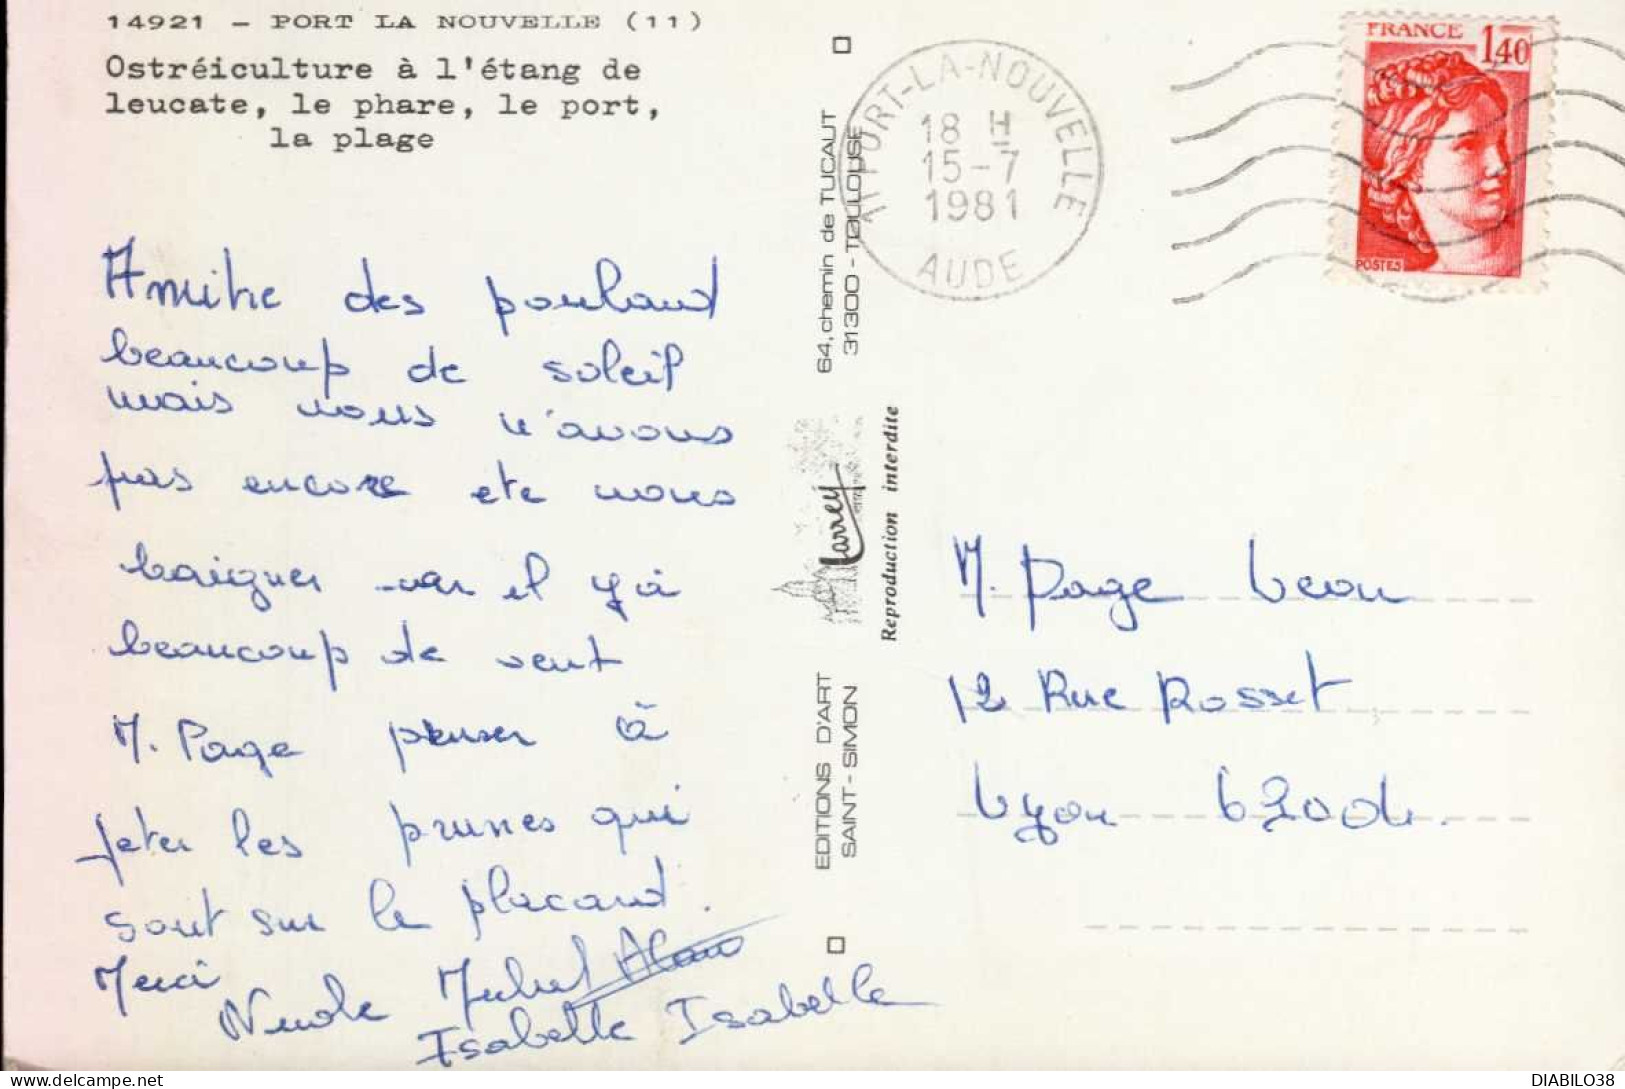 14921 - PORT LA NOUVELLE (11)
Ostréiculture à l'étang de
leucate, le phare, le port,
la plage
Amitie des pouland
beaucoup de soleil
mais nous n'avons
pas encore ete nous
baigner car il y a
beaucoup de vent
M. Page penser à
jeter les prunes qui
sont sur le placard.
Merci
Nicole Michel Alain
Isabelle Isabelle
EDITIONS D'ART
SAINT-SIMON
64, chemin de TUCAUT
31300 - TOULOUSE
Larrey
Reproduction interdite
11 PORT-LA-NOUVELLE
18 H
15-7
1981
AUDE
FRANCE
1,40
POSTES
M. Page Leon
12 Rue Rosset
Lyon 69004.
DIABILO38